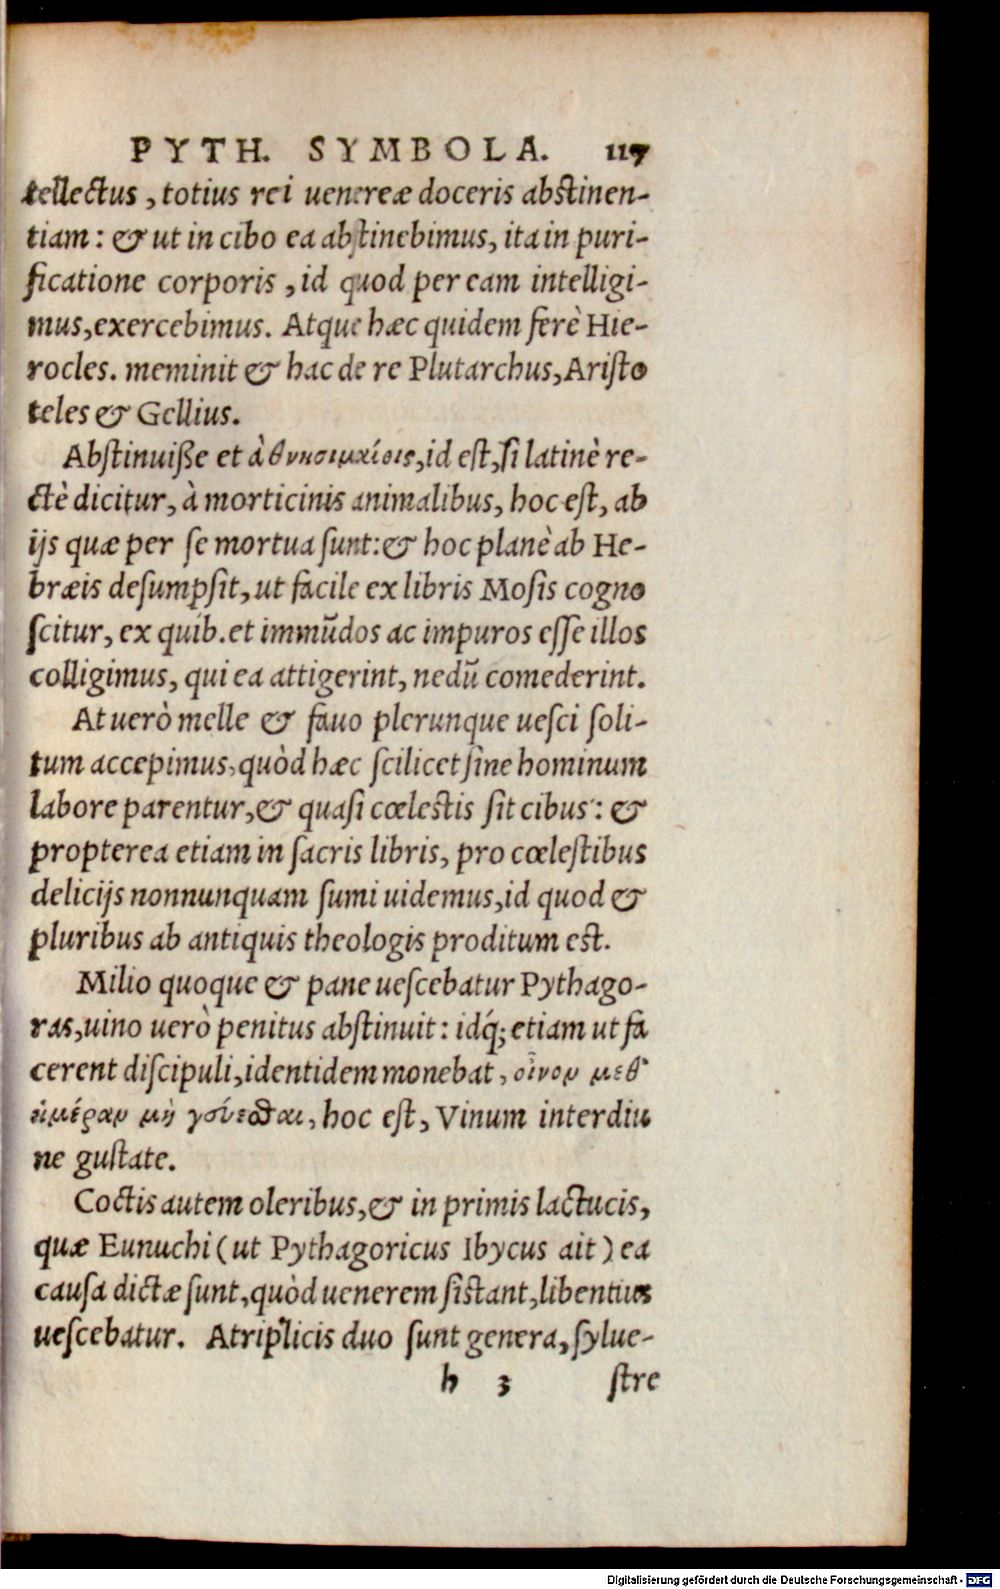 PYTH. SYMBOLA. 117
tellectus, totius rei uenereæ doceris abstinen-
tiam: & ut in cibo ea abstinebimus, ita in puri-
ficatione corporis, id quod per eam intelligi-
mus, exercebimus. Atque hæc quidem ferè Hie-
rocles. meminit & hac de re Plutarchus, Aristo
teles & Gellius.
Abstinuiße et à θνησιμαίοις, id est, si latinè re-
ctè dicitur, à morticinis animalibus, hoc est, ab
ijs quæ per se mortua sunt: & hoc planè ab He-
bræis desumpsit, ut facile ex libris Mosis cogno
scitur, ex quib. et immũdos ac impuros esse illos
colligimus, qui ea attigerint, nedũ comederint.
At uerò melle & fauo plerunque uesci soli-
tum accepimus, quòd hæc scilicet sine hominum
labore parentur, & quasi cœlestis sit cibus: &
propterea etiam in sacris libris, pro cœlestibus
delicijs nonnunquam sumi uidemus, id quod &
pluribus ab antiquis theologis proditum est.
Milio quoque & pane uescebatur Pythago-
ras, uino uerò penitus abstinuit: idq́; etiam ut fa
cerent discipuli, identidem monebat, οἶνον μεθ᾽
ἡμέραν μὴ γεύεσθαι, hoc est, Vinum interdiu
ne gustate.
Coctis autem oleribus, & in primis lactucis,
quæ Eunuchi (ut Pythagoricus Ibycus ait) ea
causa dictæ sunt, quòd uenerem sistant, libentius
uescebatur. Atriplicis duo sunt genera, sylue-
h 3 stre
Digitalisierung gefördert durch die Deutsche Forschungsgemeinschaft - DFG